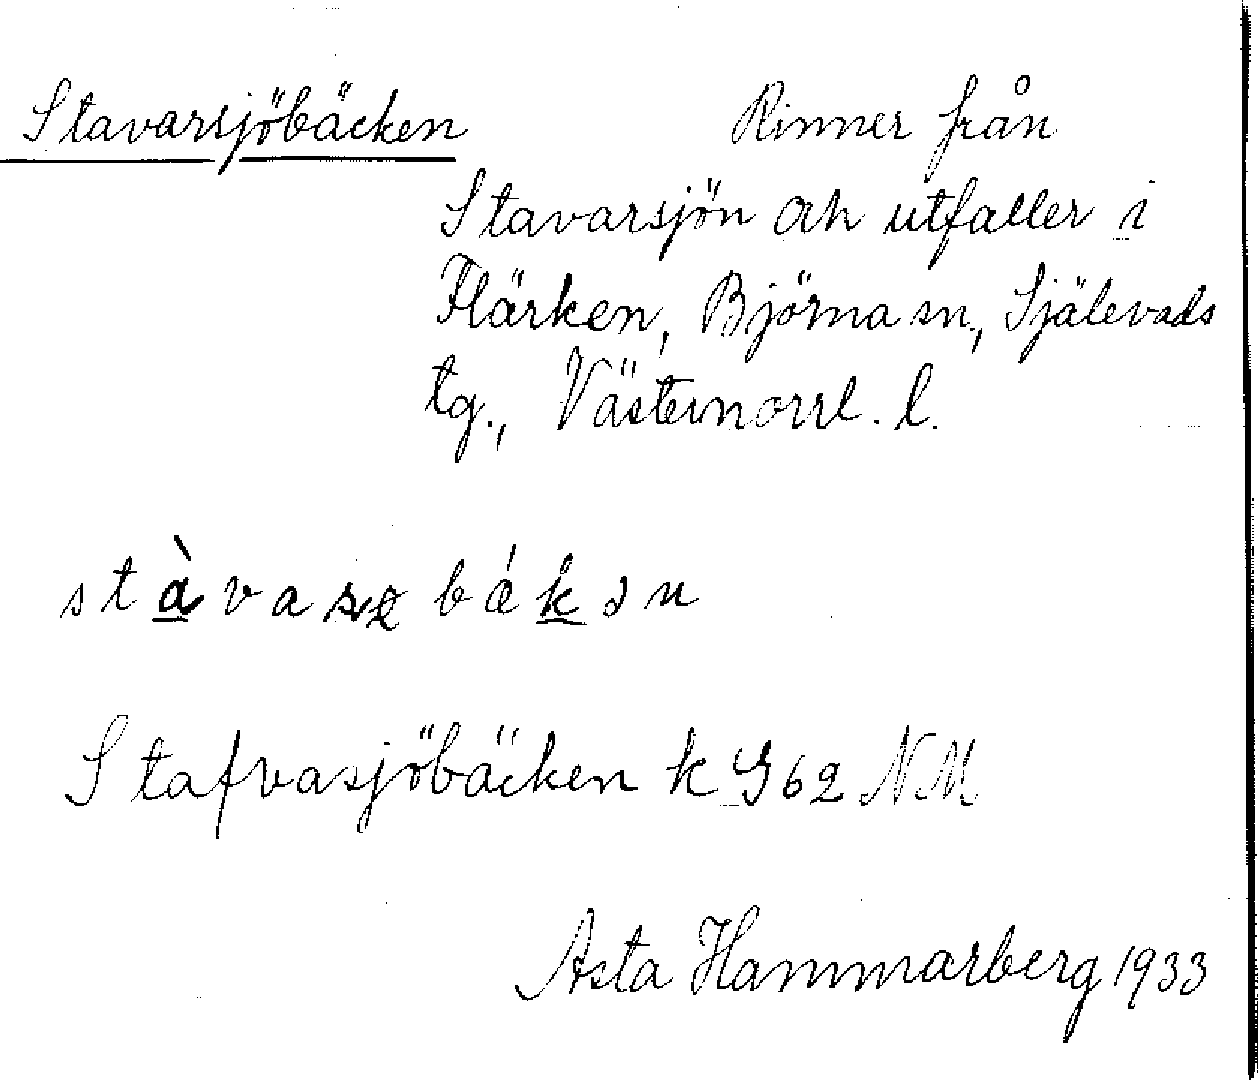 Stavarsjöbäcken Rinner från
Stavarsjön och utfaller i
Flärken, Björna sn, Själevads
tg., Västernorrl. l.
Stafvasjöbäcken k G62 NM
Asta Hammarberg 1933